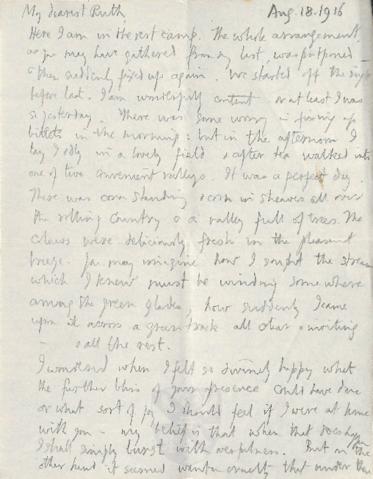 My dearest Ruth, Aug. 18. 1916
Here I am in the rest camp. The whole arrangement
as you may have gathered from my last, was postponed
then suddenly fixed up again. We started off the night
before last. I am wonderfully content or at least I was
so yesterday. There was some worry in fixing up
billets in the morning: but in the afternoon I
lay idly in a lovely field & after tea walked into
one of two convenient valleys. It was a perfect day
There was corn standing & corn in sheaves all over
the rolling country & a valley full of trees. The
colours were deliciously fresh in the pleasant
breeze. You may imagine how I sought the stream
which I knew must be winding somewhere
among the green glades, how suddenly I came
upon it across a green all clear & inviting
& all the rest.
I wondered when I felt so divinely happy what
the further bliss of your presence could have done
or what sort of joy I should feel if I were at home
with you - my belief is that when that does happen
I shall simply burst with happiness. But on the
other hand it seemed wanton cruelty that under the